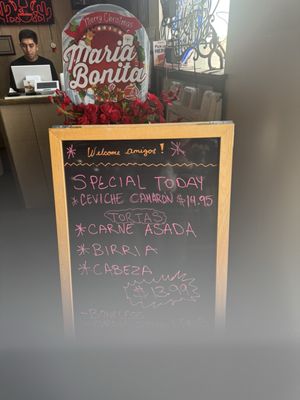 Merry Christmas
María
Bonita
Welcome amigos!
SPECIAL TODAY
*CEVICHE CAMARON $14.95
TORTAS
*CARNE ASADA
*BIRRIA
*CABEZA
$13.99